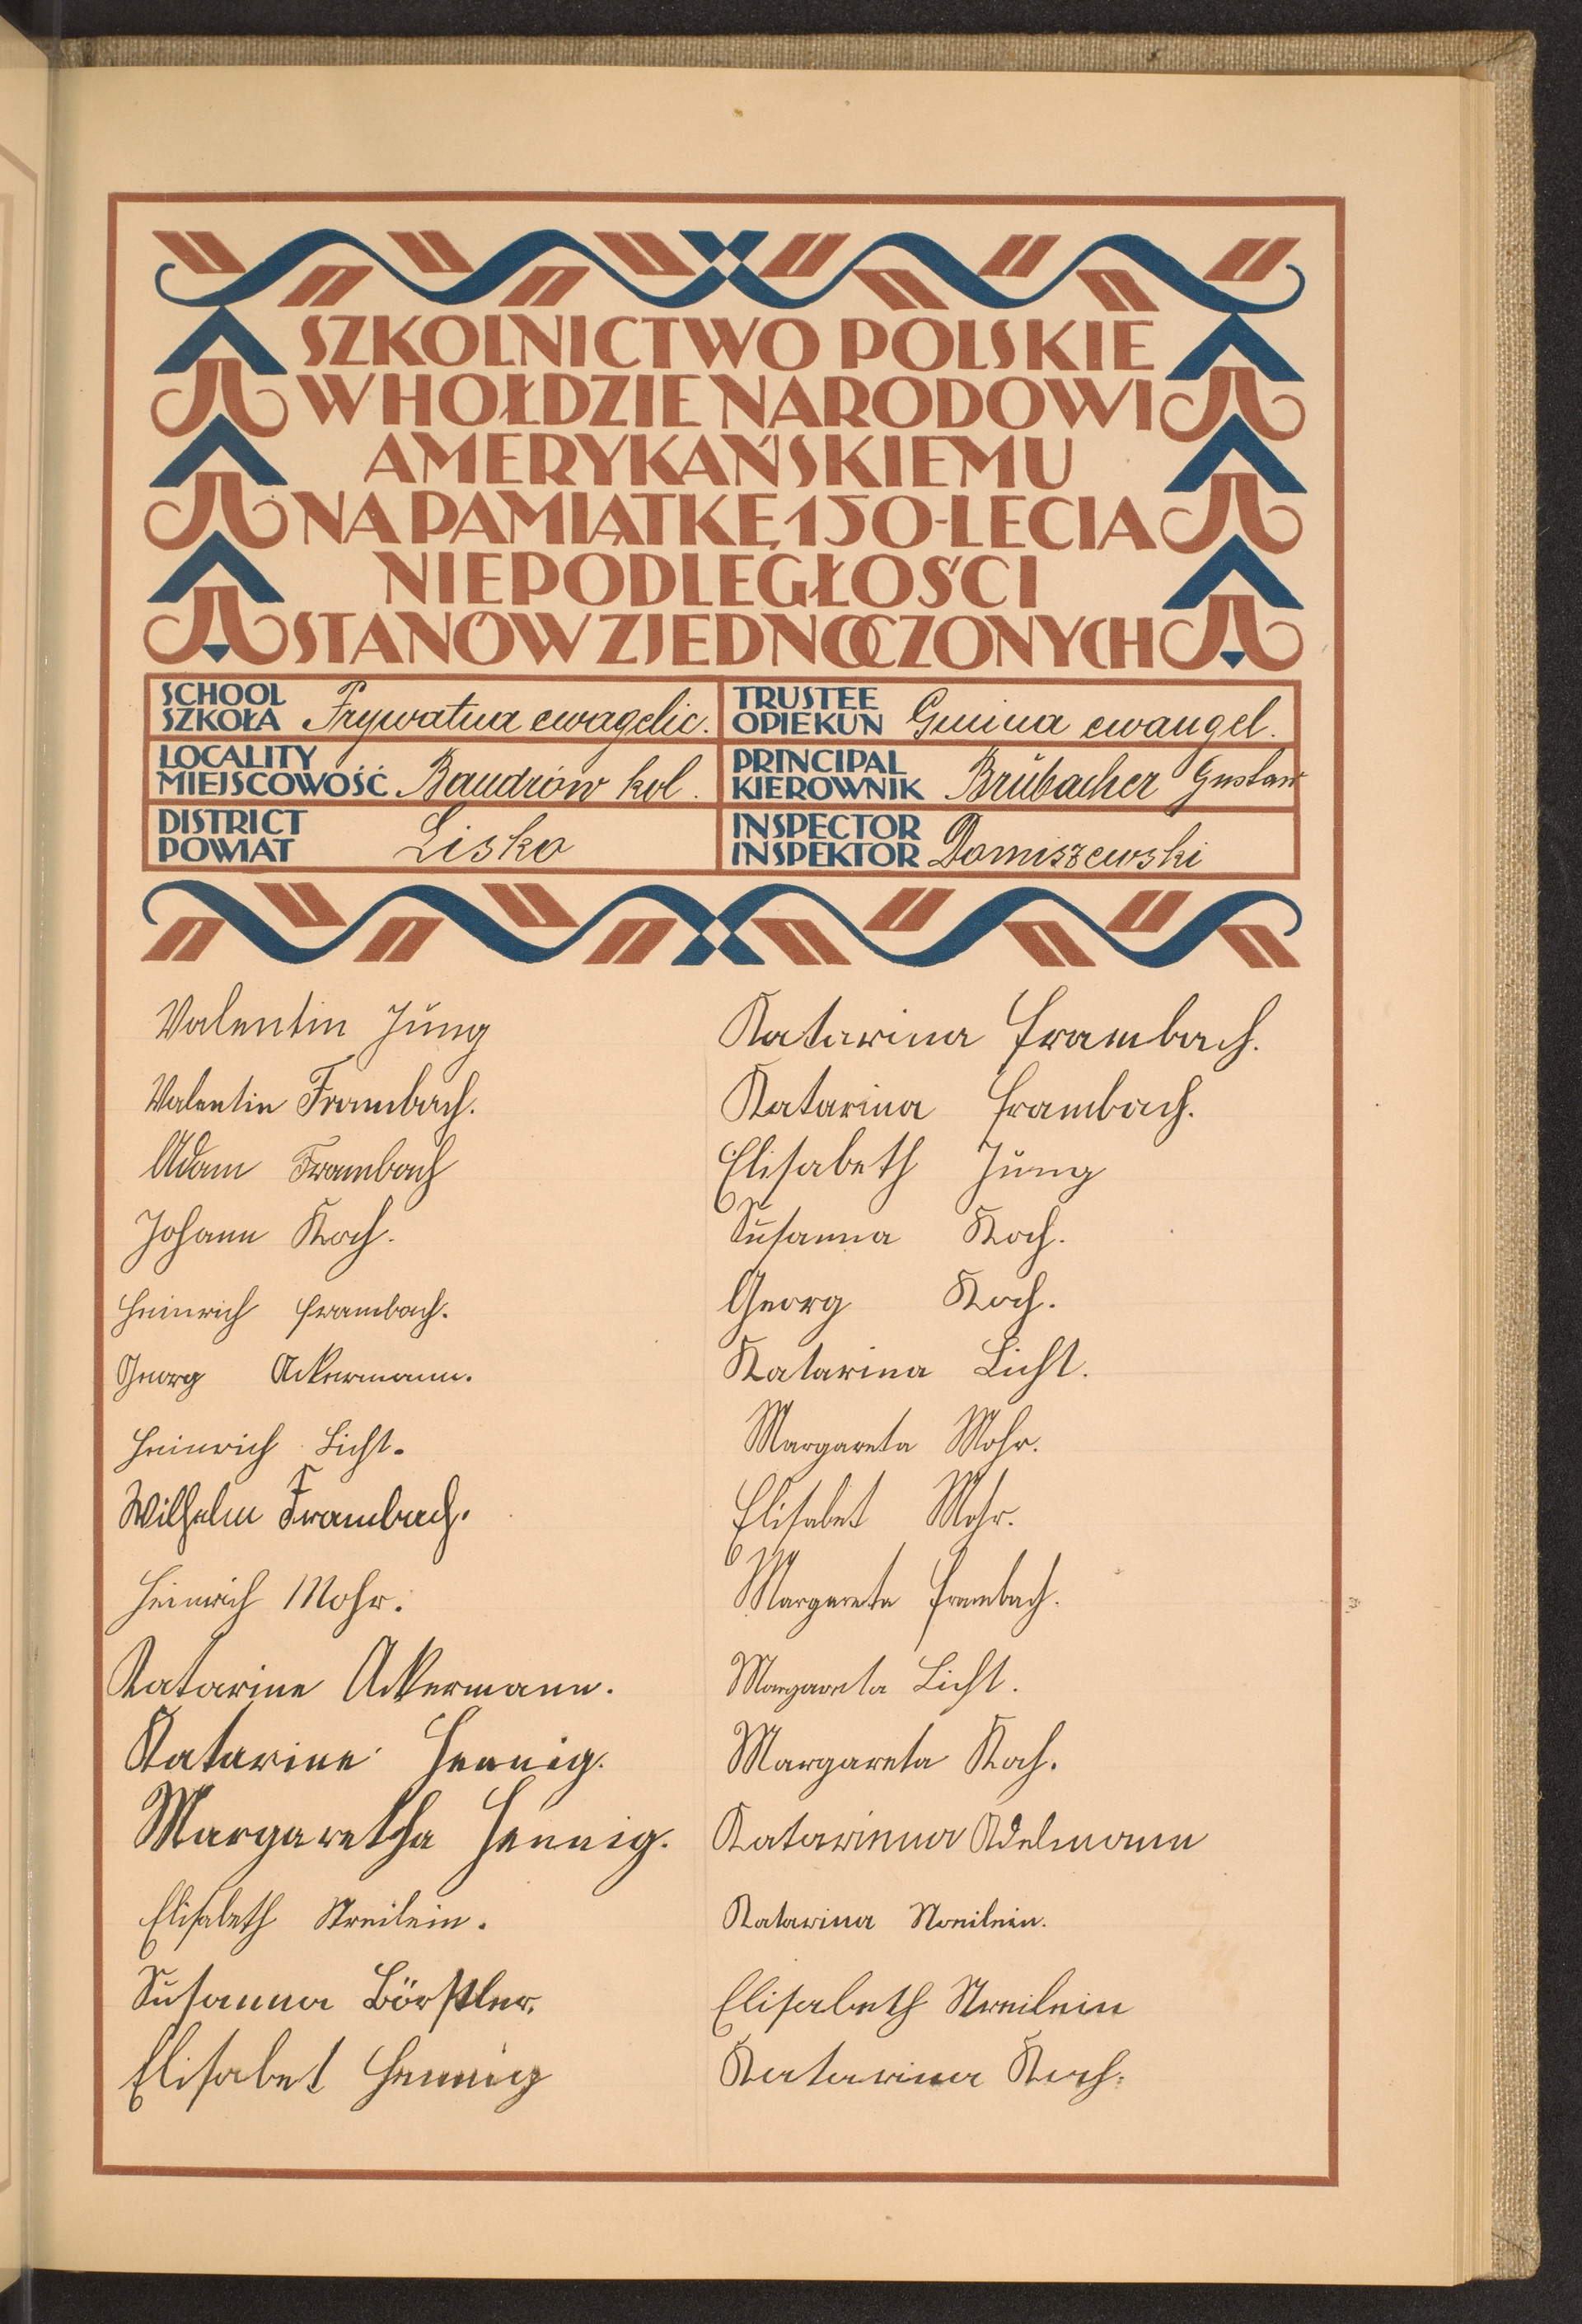 SZKOLNICTWO POLSKIE
W HOŁDZIE NARODOWI
AMERYKAŃSKIEMU
NA PAMIĄTKĘ 150-LECIA
NIEPODLEGŁOŚCI
STANÓW ZJEDNOCZONYCH
SCHOOL
SZKOŁA Prywatna ewagelic.
TRUSTEE
OPIEKUN Gmina ewangel.
LOCALITY
MIEJSCOWOŚĆ Bandrów kol.
PRINCIPAL
KIEROWNIK Brübacher Gustaw
DISTRICT
POWIAT Lisko
INSPECTOR
INSPEKTOR Domiszewski
Valentin Jung
Valentin Frambach.
Adam Frambach
Johann Koch.
Heinrich Frambach.
Georg Ackermann.
Heinrich Licht.
Wilhelm Frambach.
Heinrich Mohr.
Katarine Ackermann.
Katarine Hennig.
Margaretha Hennig.
Elisabeth Streilein.
Susanna Börstler.
Elisabet Hennig
Katarina Frambach.
Katarina Frambach.
Elisabeth Jung
Susanna Koch.
Georg Koch.
Katarina Licht.
Margareta Mohr.
Elisabet Mohr.
Margareta Frambach.
Margareta Licht.
Margareta Koch.
Katarinna Adelmann
Katarina Streilein.
Elisabeth Streilein
Katarina Koch.